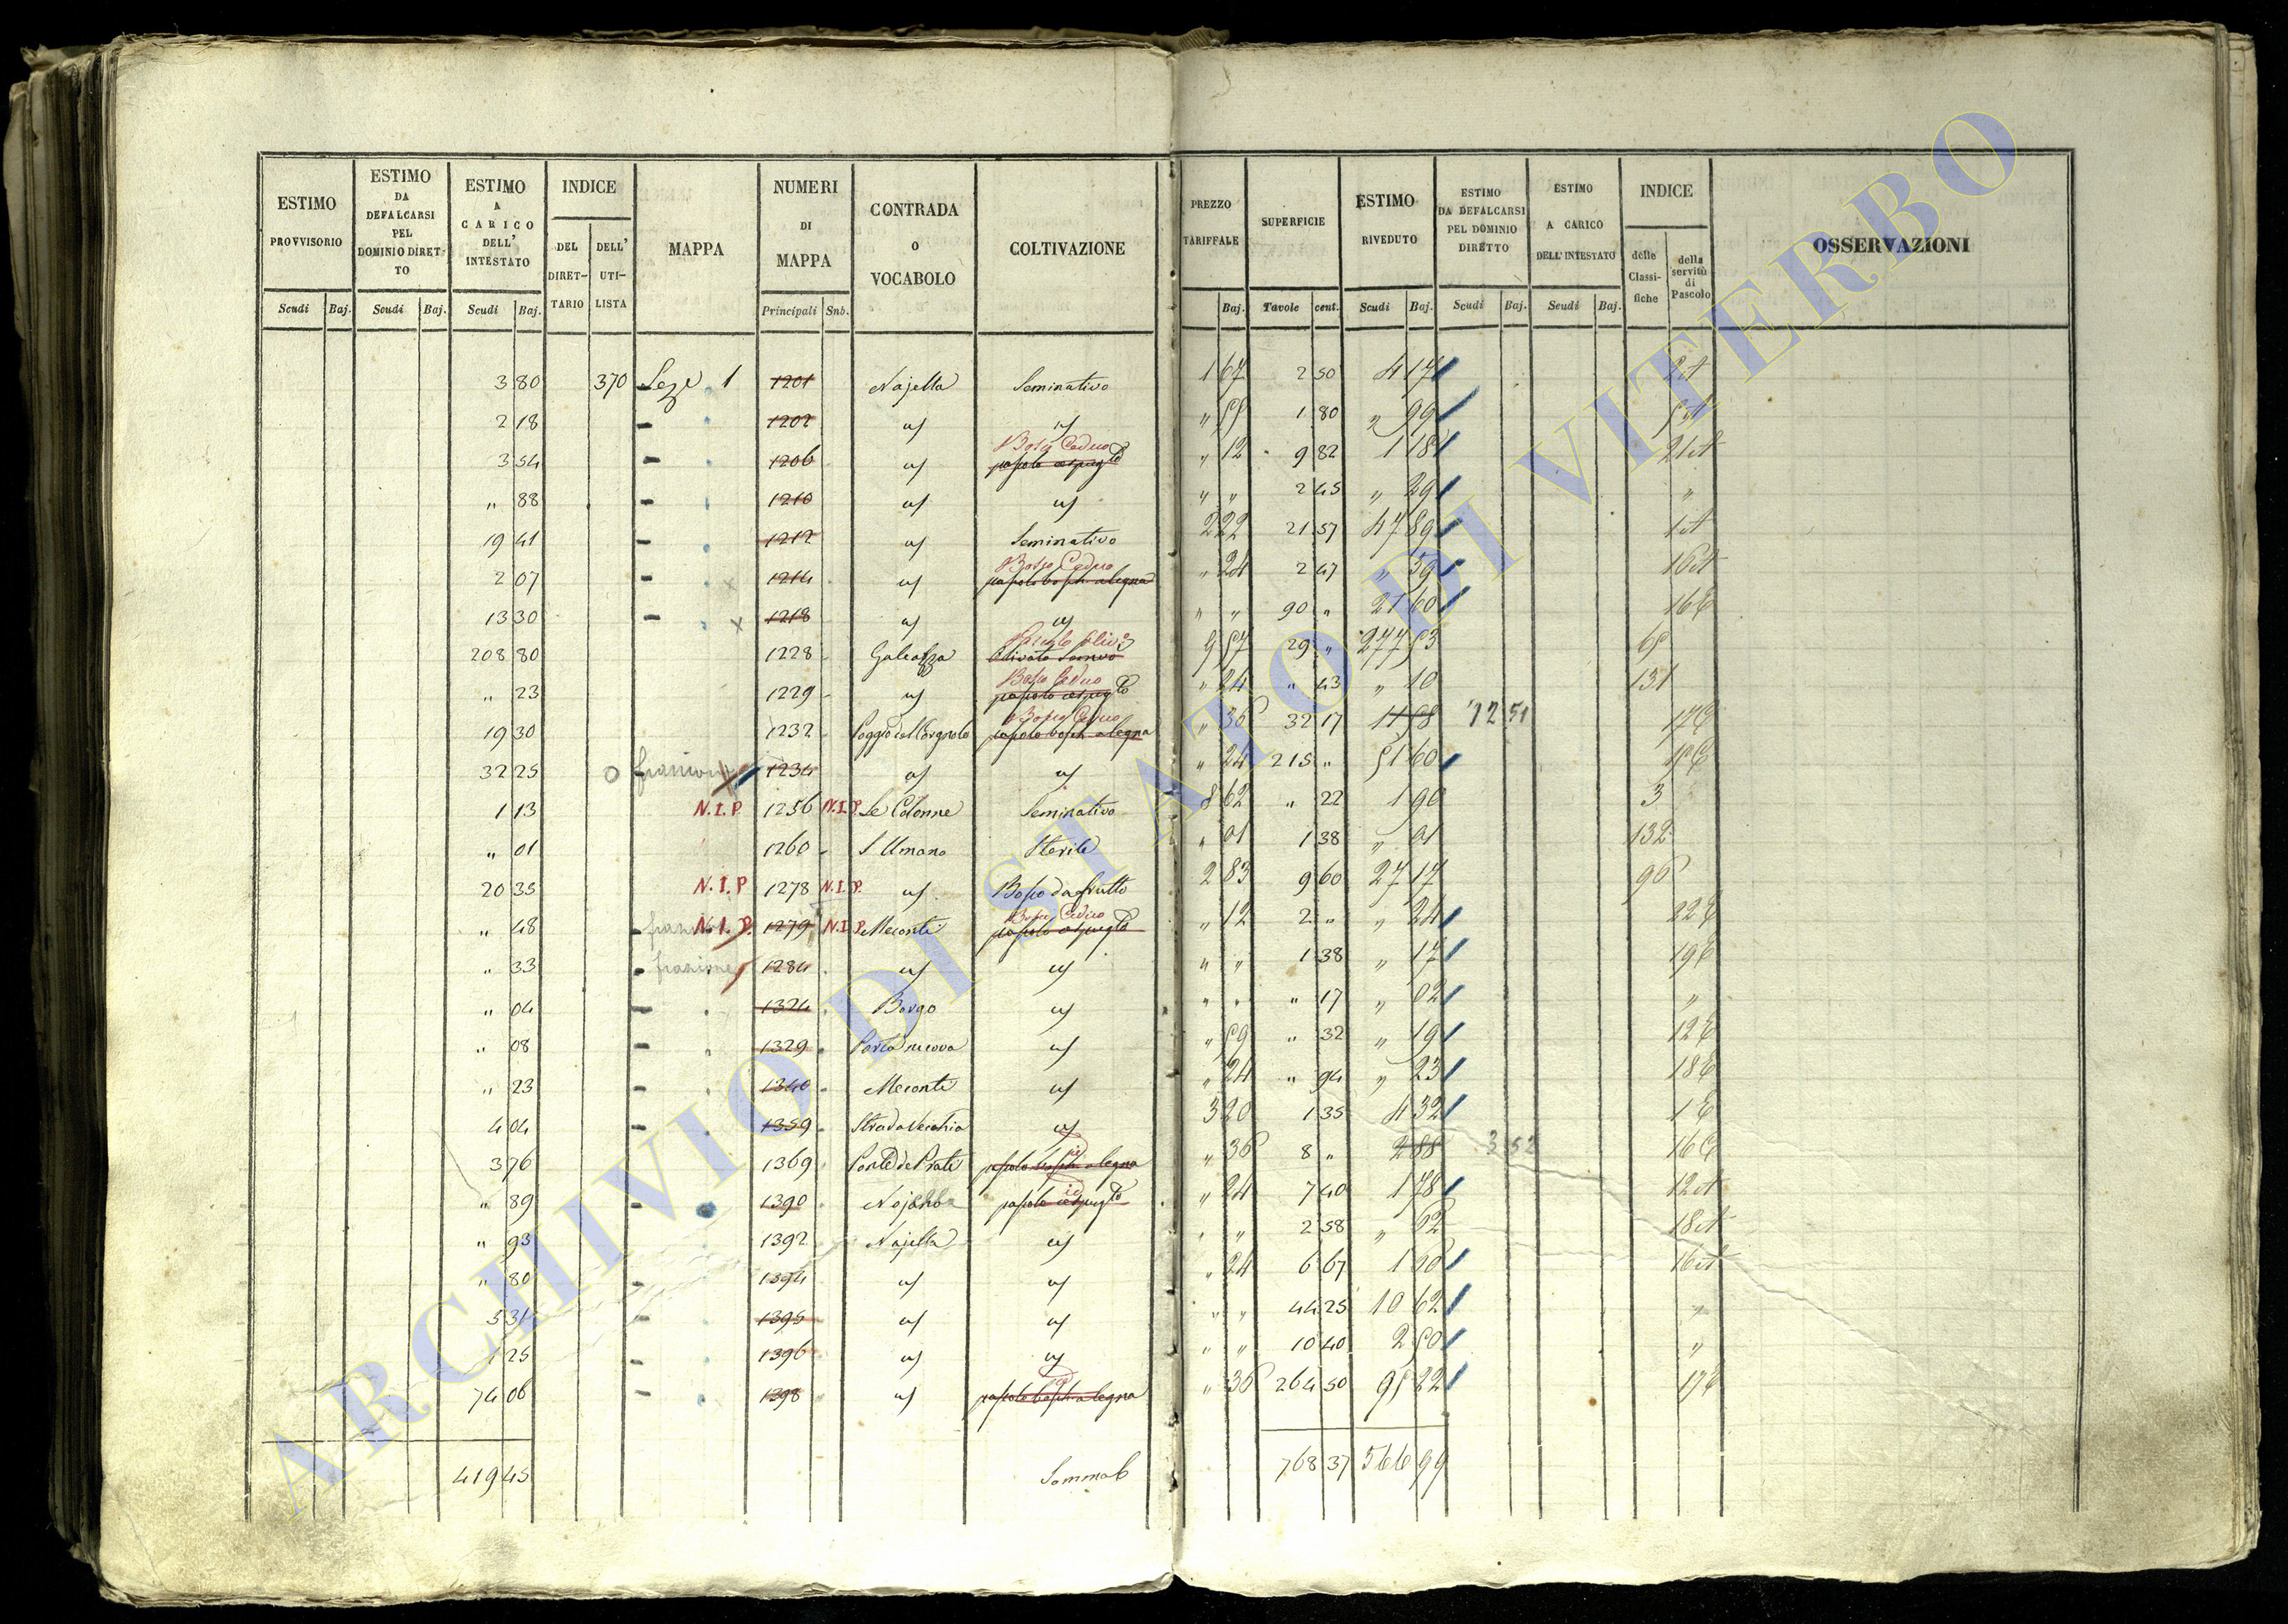 ESTIMO PROVVISORIO Scudi Baj.
ESTIMO DA DEFALCARSI PEL DOMINIO DIRET-TO Scudi Baj.
ESTIMO A CARICO DELL' INTESTATO Scudi Baj.
INDICE DEL DIRET-TARIO DELL' UTI-LISTA
MAPPA
NUMERI DI MAPPA Principali Snb.
CONTRADA O VOCABOLO
COLTIVAZIONE
PREZZO TARIFFALE Baj.
SUPERFICIE Tavole cent.
ESTIMO RIVEDUTO Scudi Baj.
ESTIMO DA DEFALCARSI PEL DOMINIO DIRETTO Scudi Baj.
ESTIMO A CARICO DELL'INTESTATO Scudi Baj.
INDICE delle Classi-fiche della servitù di Pascolo
OSSERVAZIONI
3 80 370 1 1201 Najella Seminativo 1 67 2 50 4 17
2 18 1202 1 80 " 99
3 54 1206 Bosco Ceduo " 12 9 82 1 18
" 88 1210 " " 2 45 " 29 "
19 41 1212 Seminativo 2 22 21 57 47 89
2 07 1214 Bosco Ceduo pascolo bosch a legna " 24 2 47 " 59
13 30 1218 " " 90 " 21 60
208 80 1228 9 57 29 " 277 53
" 23 1229 Bosco Ceduo " 24 " 43 " 10 131
19 30 1232 Bosco Ceduo pascolo bosch a legna " 36 32 17 11 58 12 51
32 25 frazione 1234 " 24 215 " 51 60
1 13 N.I.P. 1256 N.I.P. Le Colonne Seminativo 8 62 " 22 1 90 3
" 01 1260 S Umano Sterile " 01 1 38 " 01 132
20 35 N.I.P 1278 N.I.P. Bosco da frutto 2 83 9 60 27 17 96
" 48 N.I.P. 1279 N.I.P. Meconte Bosco Ceduo " 12 2 " " 24
" 33 frazione 1284 " " 1 38 " 17
" 04 1324 Borgo " " " 17 " 02 "
" 08 1329 Porta nuova " 59 " 32 " 19
" 23 1340 Meconte " 24 " 94 " 23
4 04 1359 Strada Vecchia 3 20 1 35 4 32
3 76 1369 id pascolo bosch a legna " 36 8 " 2 88 3 52
" 89 1390 id " 24 7 40 1 78
" 93 1392 Najella " " 2 58 " 62
" 80 1394 " 24 6 67 1 60
5 31 1395 " " 44 25 10 62 "
1 25 1396 " " 10 40 2 50 "
74 06 1398 pascolo bosch a legna " 36 264 50 95 22
419 45 768 37 566 99
ARCHIVIO DI STATO DI VITERBO